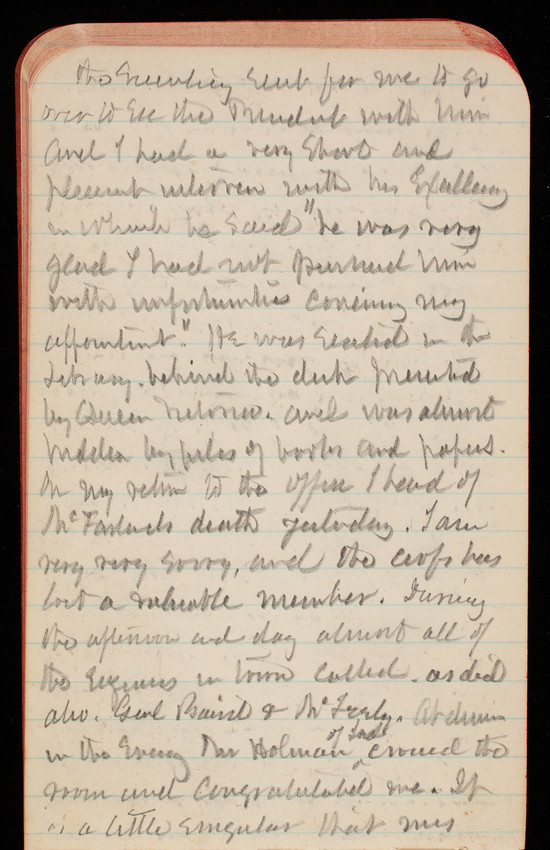 the Secretary sent for me to go
over to see the President with him
and I had a very short and
pleasant interview with his Excellency
in which he said "he was very
glad I had not pushed him
with importunities concerning my
appointment." He was seated in the
Library, behind the desk presented
by Queen Victoria, and was almost
hidden by piles of books and papers.
On my return to the office I heard of
McFarland's death yesterday. I am
very very sorry, and the corps has
lost a valuable member. During
the afternoon and day almost all of
the Engineers in town called, as did
also Genl Baird & McFeely. At dinner
in the Evening Mr Holman of Ind. crossed the
room and congratulated me. It
is a little singular that my